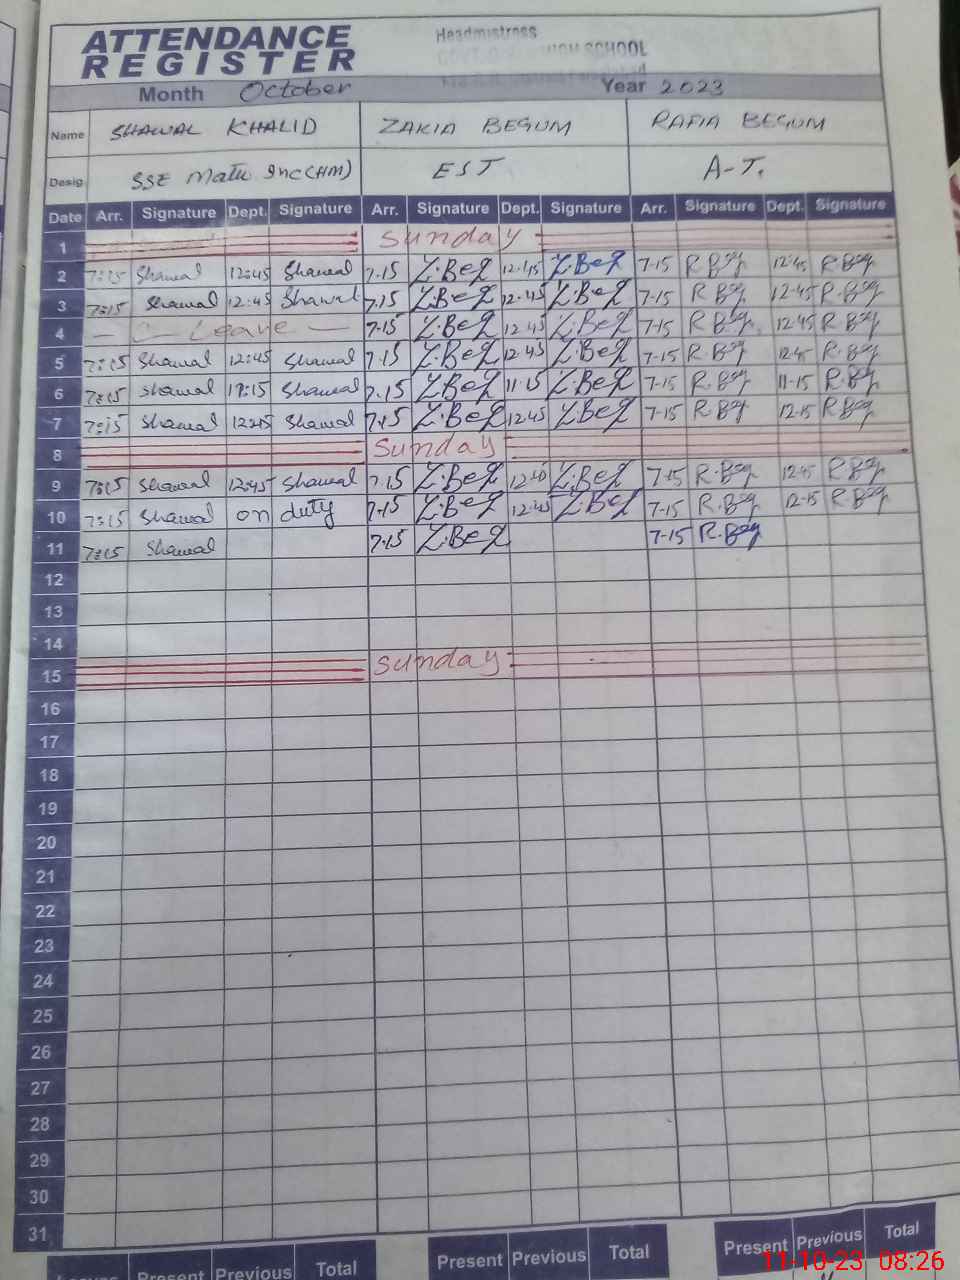 ATTENDANCE
REGISTER
Headmistress
HIGH SCHOOL
Month October Year 2023
Name SHAWAL KHALID ZAKIA BEGUM RAFIA BEGUM
Desig SSE Math Inc(HM) EST A-T.
Date Arr. Signature Dept. Signature Arr. Signature Dept. Signature Arr. Signature Dept. Signature
1 Sunday
2 7:15 Shawal 12:45 Shawal 7.15 Z.Beg 12.45 Z.Beg 7-15 R.Beg 12.45 R.Beg
3 7:15 Shawal 12:45 Shawal 7.15 Z.Beg 12.45 Z.Beg 7-15 R.Beg 12.45 R.Beg
4 Leave 7.15 Z.Beg 12.45 Z.Beg 7-15 R.Beg 12.45 R.Beg
5 7:15 Shawal 12:45 Shawal 7.15 Z.Beg 12.45 Z.Beg 7-15 R.Beg 12.45 R.Beg
6 7:15 Shawal Shawal 7.15 Z.Beg 11.15 Z.Beg 7-15 R.Beg 11-15 R.Beg
7 7:15 Shawal 12:45 Shawal 7.15 Z.Beg 12.45 Z.Beg 7-15 R.Beg 12-15 R.Beg
8 Sunday
9 7:15 Shawal 12:45 Shawal 7.15 Z.Beg Z.Beg 7-15 R.Beg 12.45 R.Beg
10 7:15 Shawal on duty 7.15 Z.Beg 12.45 Z.Beg 7-15 R.Beg 12-15 R.Beg
11 7:15 Shawal 7.15 Z.Beg 7-15 R.Beg
12
13
14
15 Sunday
16
17
18
19
20
21
22
23
24
25
26
27
28
29
30
31
Leaves Present Previous Total Present Previous Total Present Previous Total
11-10-23 08:26